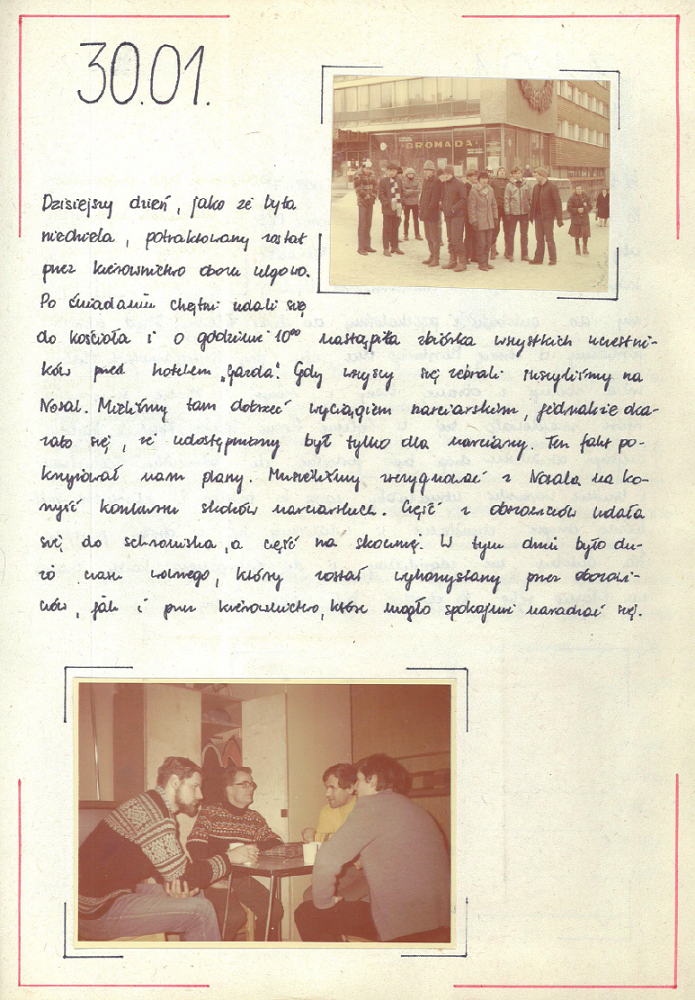 30.01.
GROMADA
Dzisiejszy dzień, jako że była
niedziela, potraktowany został
przez kierownictwo obozu ulgowo.
Po śniadaniu chętni udali się
do kościoła i o godzinie 10⁰⁰ nastąpiła zbiórka wszystkich uczestni-
ków przed hotelem „Gazda". Gdy wszyscy się zebrali ruszyliśmy na
Nosal. Mieliśmy tam dotrzeć wyciągiem narciarskim, jednakże oka-
zało się, że udostępniony był tylko dla narciarzy. Ten fakt po-
krzyżował nam plany. Musieliśmy zrezygnować z Nosala na ko-
rzyść konkursu skoków narciarskich. Część z obozowiczów udała
się do schroniska, a część na skocznię. W tym dniu było du-
żo czasu wolnego, który został wykorzystany przez obozowi-
czów, jak i przez kierownictwo, które mogło spokojnie naradzać się.